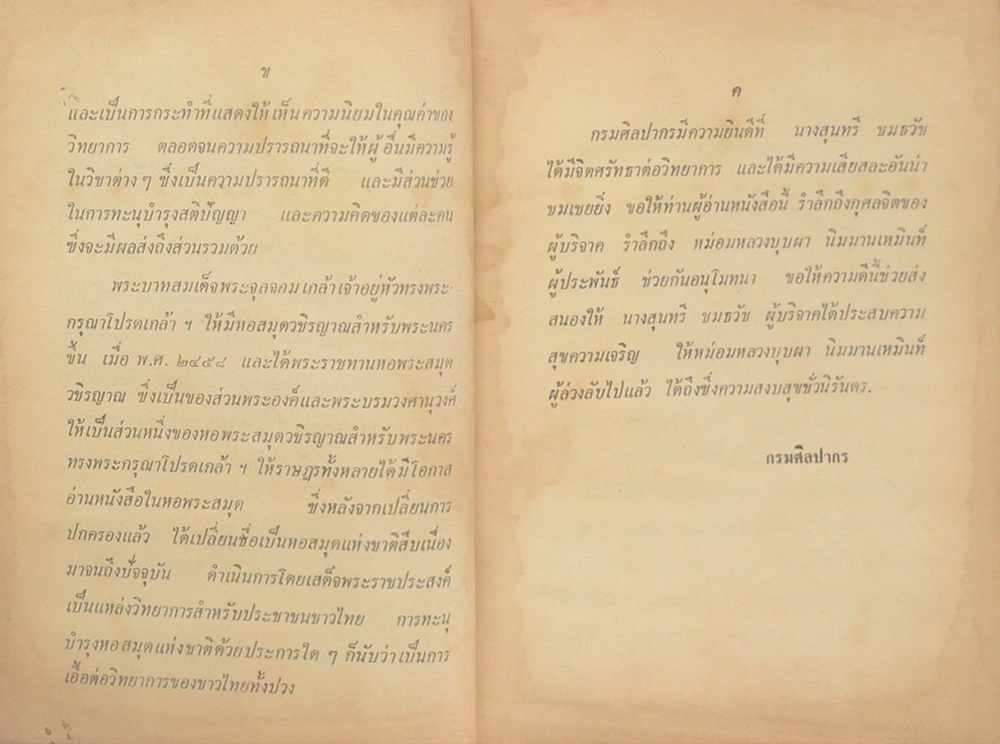 ข
และเป็นการกระทำที่แสดงให้เห็นความนิยมในคุณค่าของ
วิทยาการ ตลอดจนความปรารถนาที่จะให้ผู้อื่นมีความรู้
ในวิชาต่าง ๆ ซึ่งเป็นความปรารถนาที่ดี และมีส่วนช่วย
ในการทะนุบำรุงสติปัญญา และความคิดของแต่ละคน
ซึ่งจะมีผลส่งถึงส่วนรวมด้วย
พระบาทสมเด็จพระจุลจอมเกล้าเจ้าอยู่หัวทรงพระ-
กรุณาโปรดเกล้า ฯ ให้มีหอสมุดวชิรญาณสำหรับพระนคร
ขึ้น เมื่อ พ.ศ. ๒๔๕๘ และได้พระราชทานหอพระสมุด
วชิรญาณ ซึ่งเป็นของส่วนพระองค์และพระบรมวงศานุวงศ์
ให้เป็นส่วนหนึ่งของหอพระสมุดวชิรญาณสำหรับพระนคร
ทรงพระกรุณาโปรดเกล้า ฯ ให้ราษฎรทั้งหลายได้มีโอกาส
อ่านหนังสือในหอพระสมุด ซึ่งหลังจากเปลี่ยนการ
ปกครองแล้ว ได้เปลี่ยนชื่อเป็นหอสมุดแห่งชาติสืบเนื่อง
มาจนถึงปัจจุบัน ดำเนินการโดยเสด็จพระราชประสงค์
เป็นแหล่งวิทยาการสำหรับประชาชนชาวไทย การทะนุ
บำรุงหอสมุดแห่งชาติด้วยประการใด ๆ ก็นับว่าเป็นการ
เอื้อต่อวิทยาการของชาวไทยทั้งปวง
ค
กรมศิลปากรมีความยินดีที่ นางสุนทรี ชมธวัช
ได้มีจิตศรัทธาต่อวิทยาการ และได้มีความเสียสละอันน่า
ชมเชยยิ่ง ขอให้ท่านผู้อ่านหนังสือนี้ รำลึกถึงกุศลจิตของ
ผู้บริจาค รำลึกถึง หม่อมหลวงบุบผา นิมมานเหมินท์
ผู้ประพันธ์ ช่วยกันอนุโมทนา ขอให้ความดีนี้ช่วยส่ง
สนองให้ นางสุนทรี ชมธวัช ผู้บริจาคได้ประสบความ
สุขความเจริญ ให้หม่อมหลวงบุบผา นิมมานเหมินท์
ผู้ล่วงลับไปแล้ว ได้ถึงซึ่งความสงบสุขชั่วนิรันดร.
กรมศิลปากร